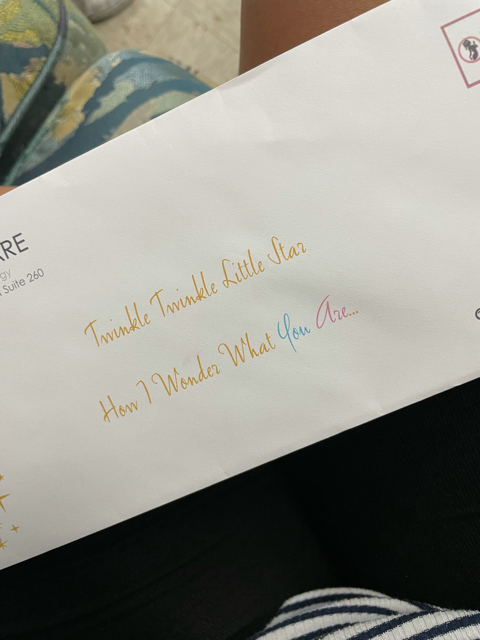 ARE
gy
Suite 260
Twinkle Twinkle Little Star
How I Wonder What You Are...